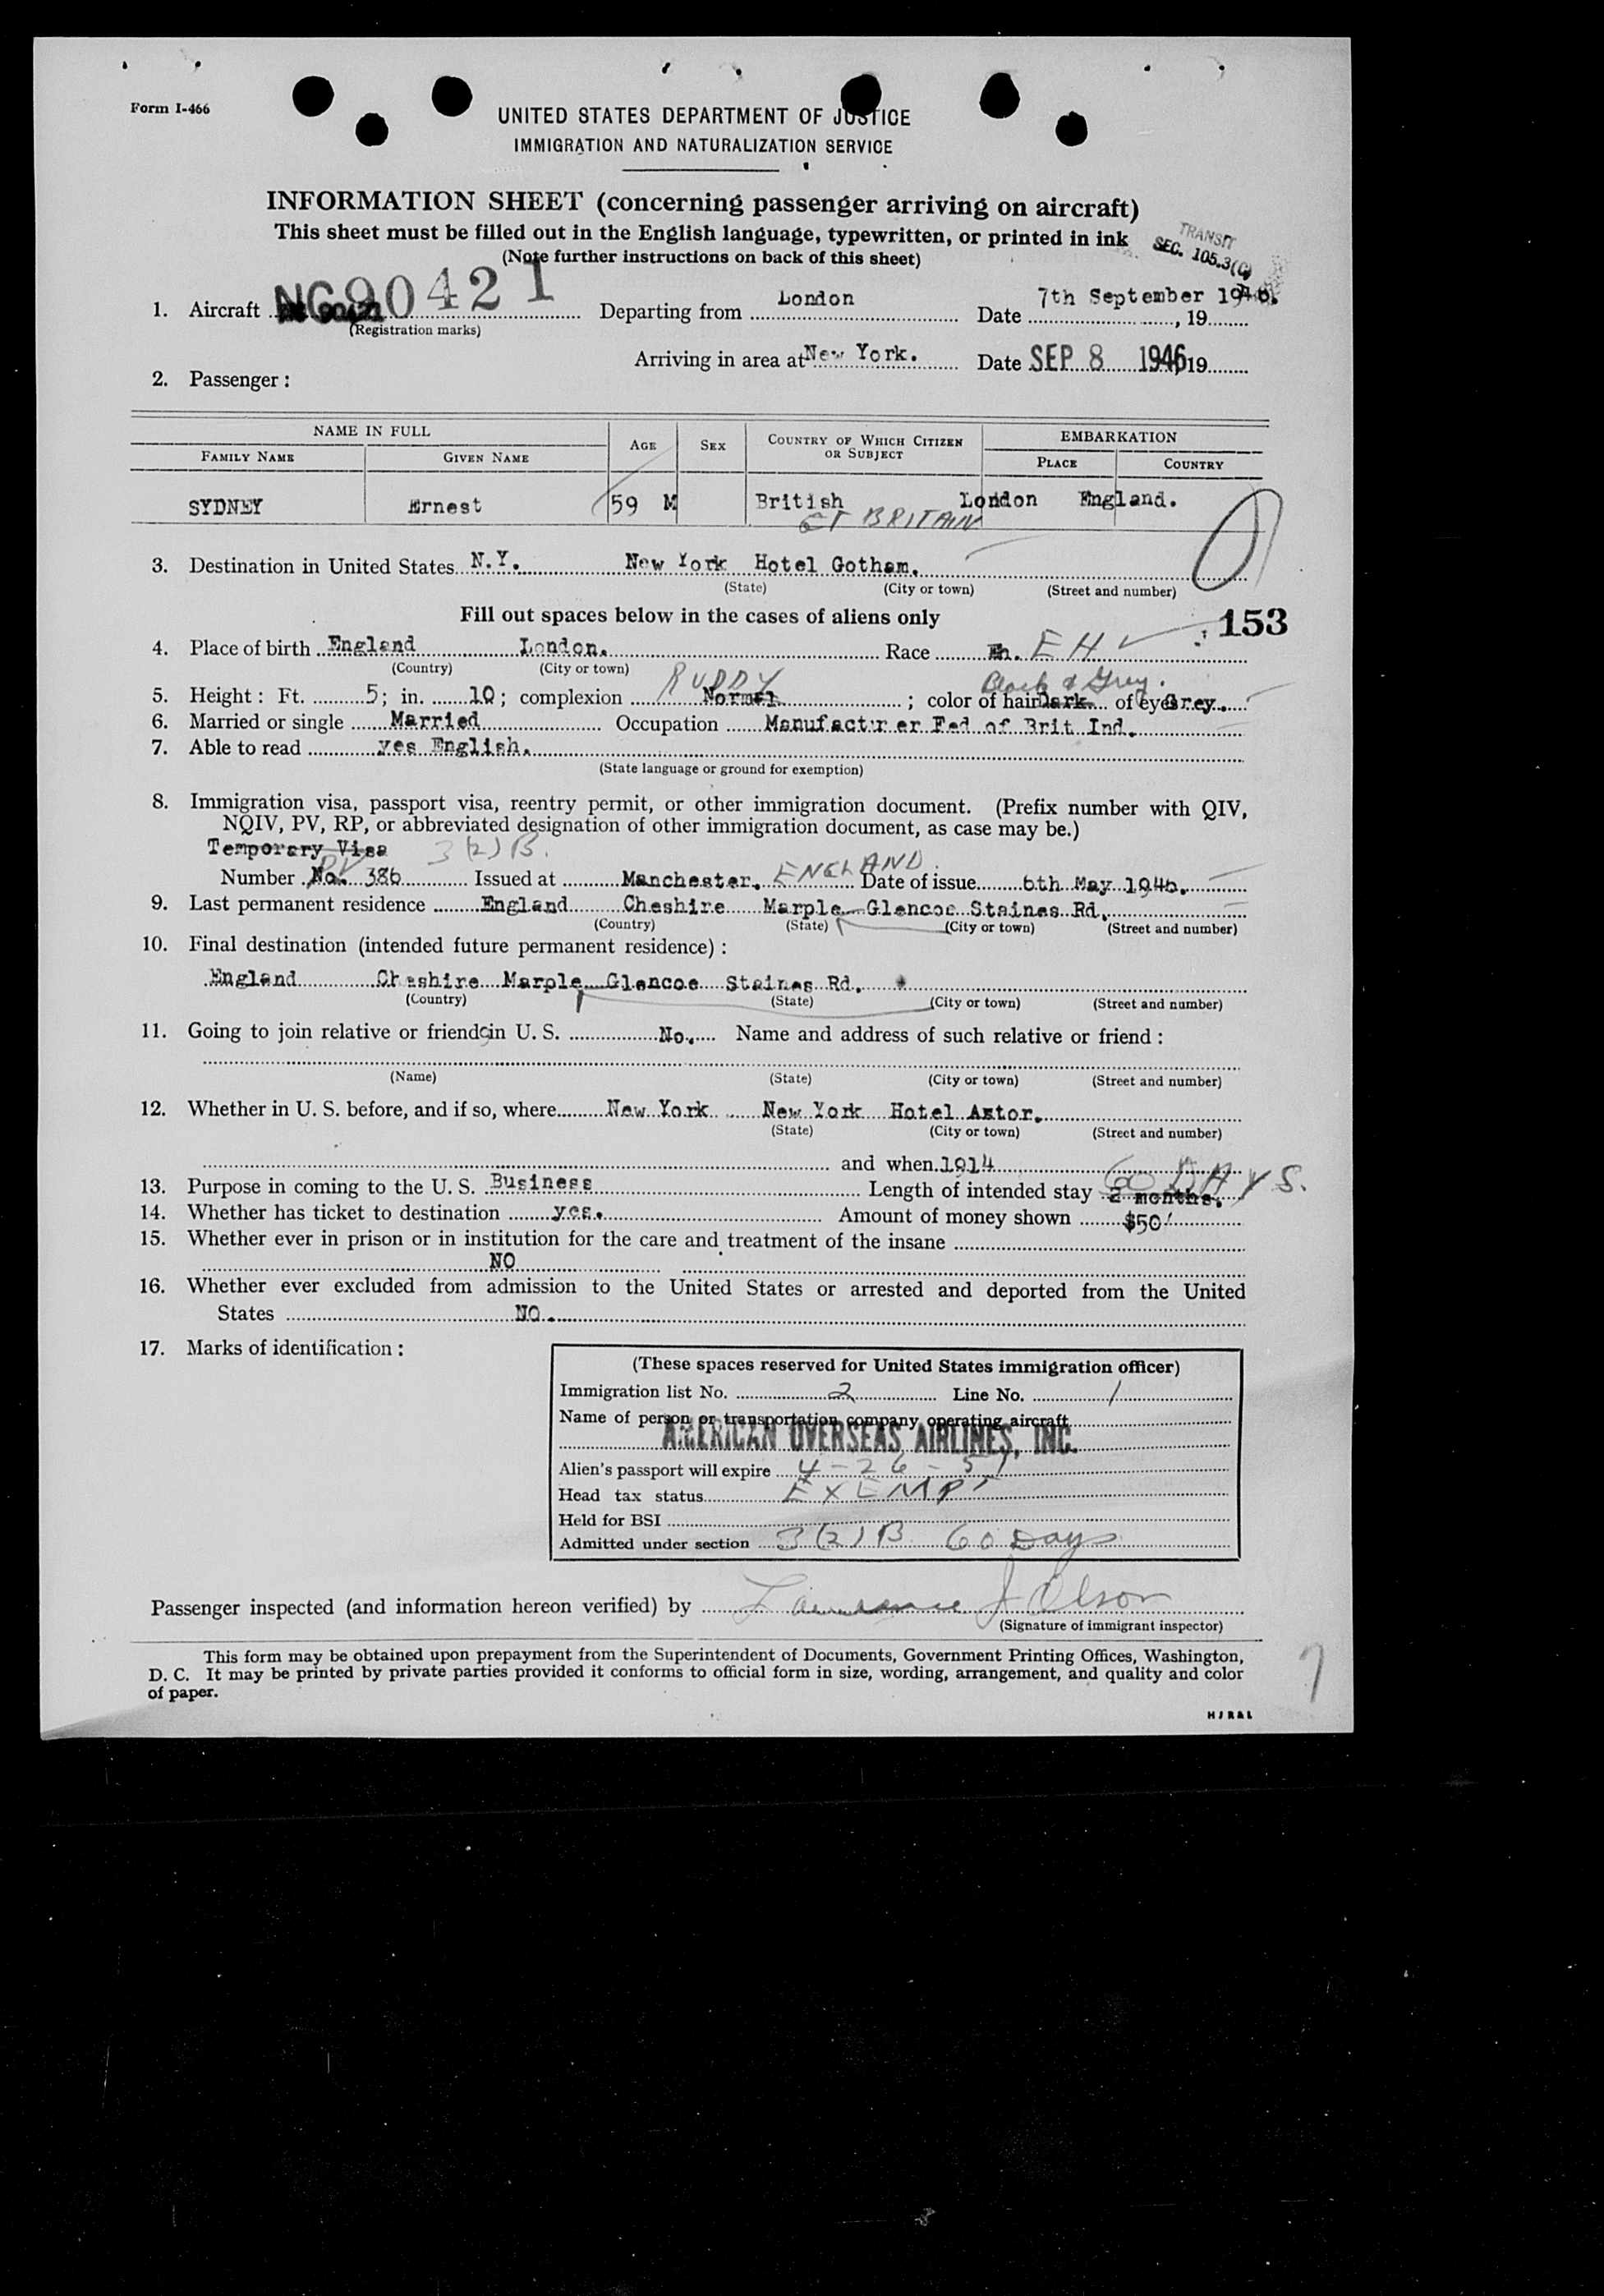 Form I-466
UNITED STATES DEPARTMENT OF JUSTICE
IMMIGRATION AND NATURALIZATION SERVICE
INFORMATION SHEET (concerning passenger arriving on aircraft)
This sheet must be filled out in the English language, typewritten, or printed in ink
(Note further instructions on back of this sheet)
TRANSIT
SEC. 105.3(C)
1. Aircraft NC90421 Departing from London Date 7th September 1946. , 19
(Registration marks)
Arriving in area at New York. Date SEP 8 1946 19
2. Passenger:
NAME IN FULL AGE SEX COUNTRY OF WHICH CITIZEN OR SUBJECT EMBARKATION
FAMILY NAME GIVEN NAME PLACE COUNTRY
SYDNEY Ernest 59 M British London England.
GT BRITAIN
3. Destination in United States N.Y. New York Hotel Gotham.
(State) (City or town) (Street and number)
Fill out spaces below in the cases of aliens only
153
4. Place of birth England London. Race EH
(Country) (City or town)
RUDDY Black & Grey.
5. Height: Ft. 5; in. 10; complexion Normal ; color of hair Dark of eyes Grey.
6. Married or single Married Occupation Manufacturer Fed of Brit Ind.
7. Able to read yes English.
(State language or ground for exemption)
8. Immigration visa, passport visa, reentry permit, or other immigration document. (Prefix number with QIV,
NQIV, PV, RP, or abbreviated designation of other immigration document, as case may be.)
Temporary Visa 3(2)B.
Number PV No. 386 Issued at Manchester. ENGLAND. Date of issue 6th May 1946.
9. Last permanent residence England Cheshire Marple Glencoe Staines Rd.
(Country) (State) (City or town) (Street and number)
10. Final destination (intended future permanent residence):
England Cheshire Marple Glencoe Staines Rd.
(Country) (State) (City or town) (Street and number)
11. Going to join relative or friend in U. S. No. Name and address of such relative or friend:
(Name) (State) (City or town) (Street and number)
12. Whether in U. S. before, and if so, where New York New York Hotel Astor.
(State) (City or town) (Street and number)
and when 1914
60 DAYS.
13. Purpose in coming to the U. S. Business Length of intended stay 2 months.
14. Whether has ticket to destination yes. Amount of money shown $50
15. Whether ever in prison or in institution for the care and treatment of the insane
NO
16. Whether ever excluded from admission to the United States or arrested and deported from the United
States NO.
17. Marks of identification:
(These spaces reserved for United States immigration officer)
Immigration list No. 2 Line No. 1
Name of person or transportation company operating aircraft
AMERICAN OVERSEAS AIRLINES, INC.
Alien's passport will expire 4-26-51
Head tax status EXEMPT
Held for BSI
Admitted under section 3(2)B 60 Days
Passenger inspected (and information hereon verified) by Lawrence J Olson
(Signature of immigrant inspector)
This form may be obtained upon prepayment from the Superintendent of Documents, Government Printing Offices, Washington,
D. C. It may be printed by private parties provided it conforms to official form in size, wording, arrangement, and quality and color
of paper.
7
HJR&L